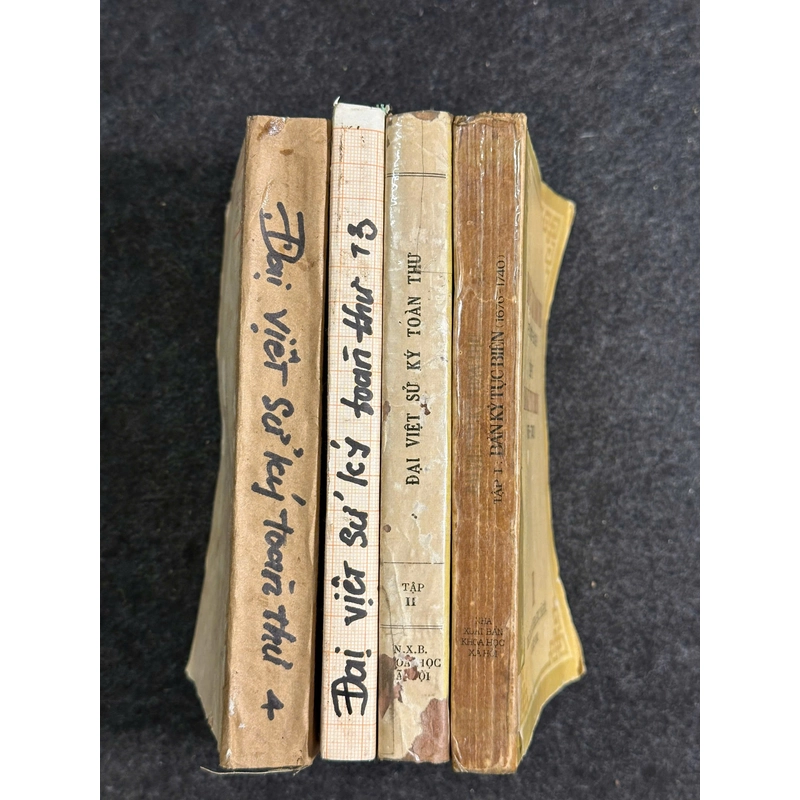 Đại Việt Sử ký toàn thư 4
Đại việt sử ký toàn thư T3
ĐẠI VIỆT SỬ KÝ TOÀN THƯ
TẬP
II
N.X.B.
TẬP I. BẢN KỶ TỤC BIÊN (1676-1740)
NHÀ
XUẤT BẢN
KHOA HỌC
XÃ HỘI